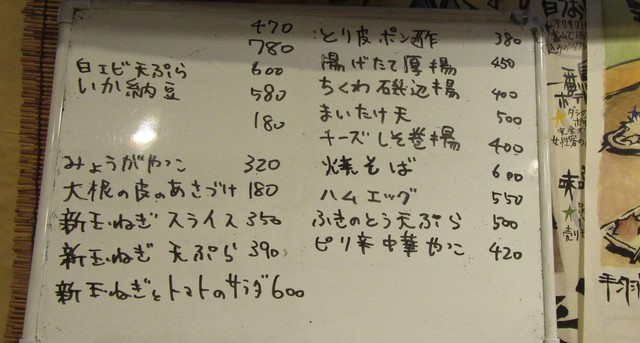 470
780
白エビ天ぷら 600
いか納豆 580
180
みょうがやっこ 320
大根の皮のあさづけ 180
新玉ねぎ スライス 350
新玉ねぎ 天ぷら 390
新玉ねぎとトマトのサラダ 600
とり皮ポン酢 380
揚げたて厚揚 450
ちくわ磯辺揚 400
まいたけ天 500
チーズしそ巻揚 400
焼そば 600
ハムエッグ 550
ふきのとう天ぷら 500
ピリ辛中華やっこ 420